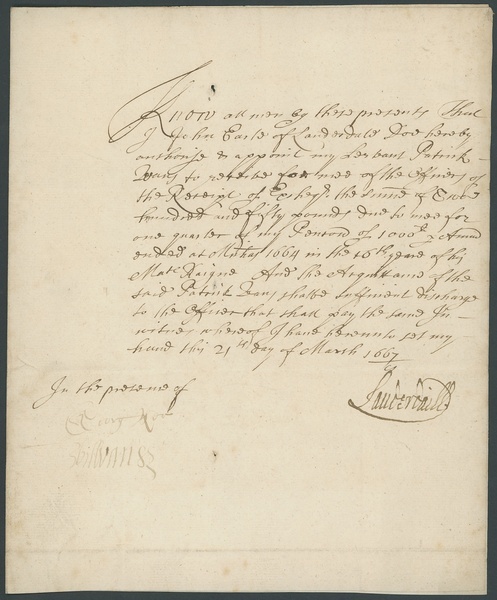 Know all men by these presents That
I John Earle of Lauderdale Doe hereby
authorise & appoint my servant Patrick
Vans to receive for mee of the Officers of
the Receipt of Excheqr. the summe of Two
hundred and fifty pounds due to mee for
one quarter of my Pention of 1000li p Annū
ended at Michas 1664 in the 16th yeare of his
Maties Raigne And the Acquittance of the
said Patrick Vans shalbe sufficient discharge
to the Officer that shall pay the same In
witnes whereof I have hereunto set my
hand this 21th day of March 166
Lauderdaill
In the presence of